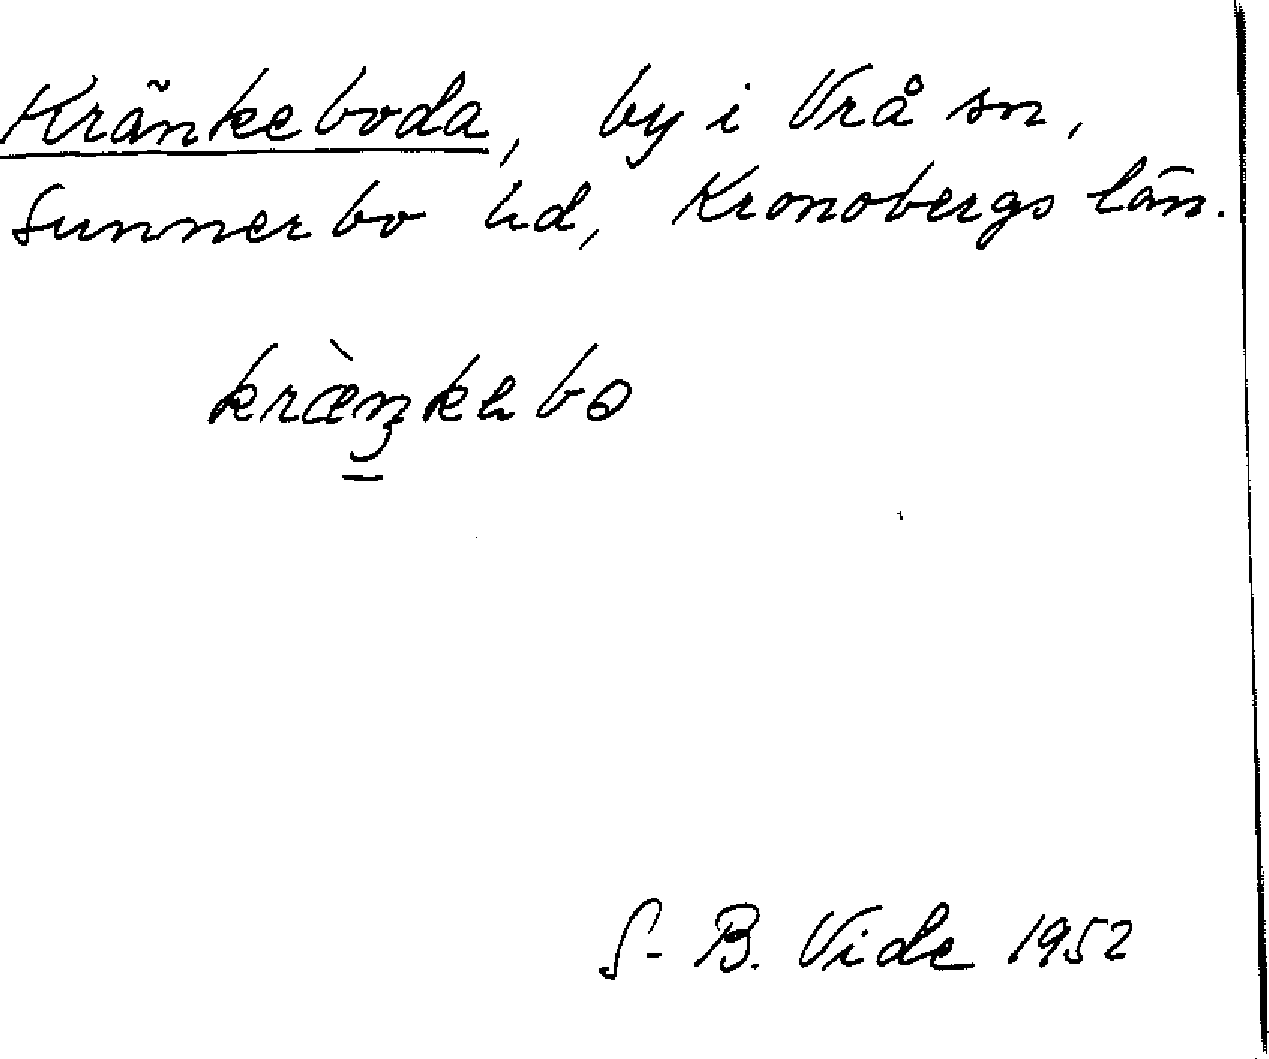 Kränkeboda, by i Vrå sn,
Sunnerbo hd, Kronobergs län.
kræ̀ŋkebo
S. B. Vide 1952